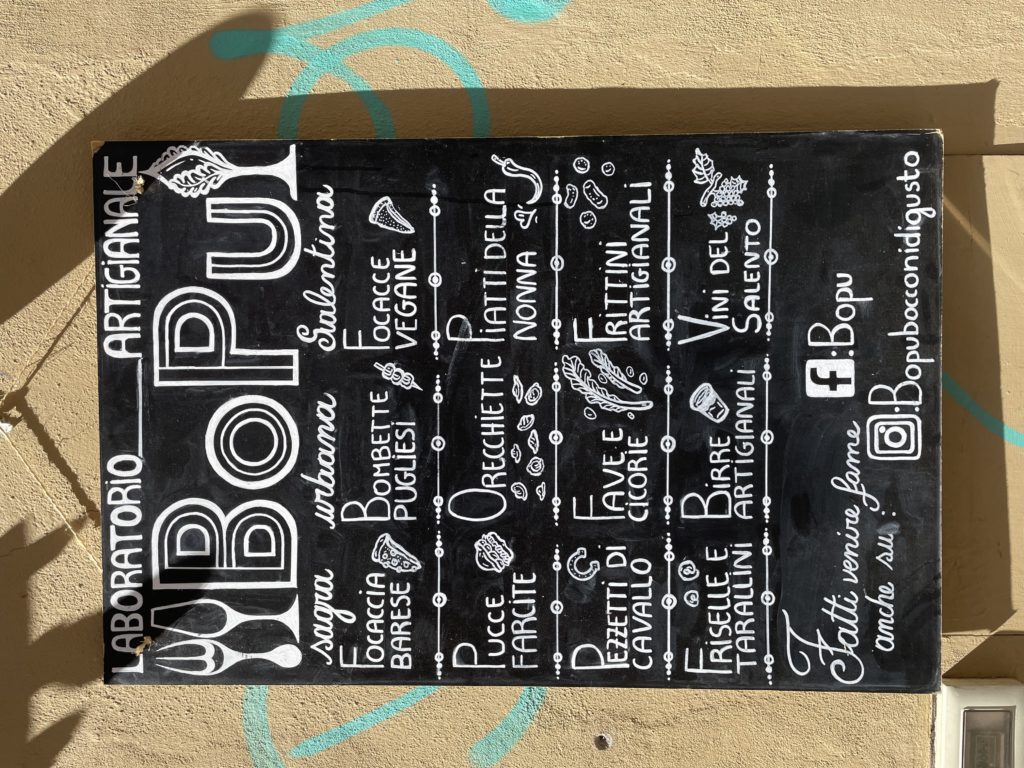 LABORATORIO ARTIGIANALE
BOPU
sagra urbana Salentina
FOCACCIA BARESE
BOMBETTE PUGLIESI
FOCACCE VEGANE
PUCCE FARCITE
ORECCHIETTE
PIATTI DELLA NONNA
PEZZETTI DI CAVALLO
FAVE E CICORIE
FRITTINI ARTIGIANALI
FRISELLE E TARALLINI
BIRRE ARTIGIANALI
VINI DEL SALENTO
Fatti venire fame
anche su:
f:Bopu
:Bopubocconidigusto